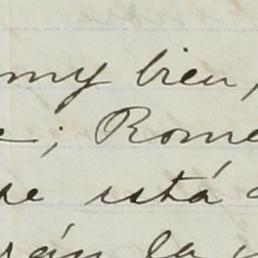 my bien,
e; Rome
se está
rán la